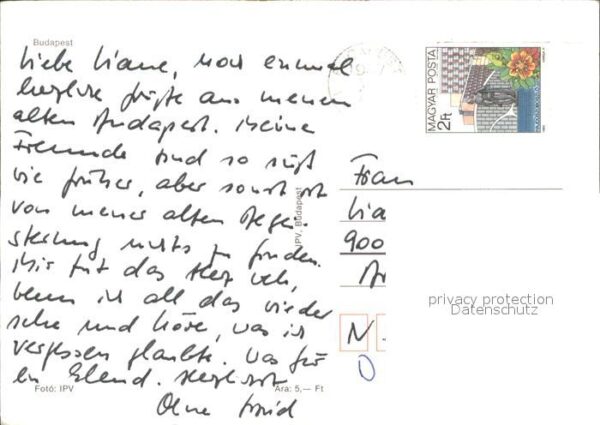 Budapest
Liebe Liane, noch einmal
herzliche Grüße aus meinem
alten Budapest. Meine
Freunde sind so süß
wie früher, aber sonst ist
von meiner alten Begei-
sterung nichts zu finden.
Mir tut das Herz weh,
wenn ich all das wieder
sehe und höre, was ich
vergessen glaubte. Was für
ein Elend. Herzlichst
Foto: IPV
Ára: 5,— Ft
IPV, Budapest
MAGYAR POSTA
2Ft
Frau
Lia
900
N
privacy protection
Datenschutz